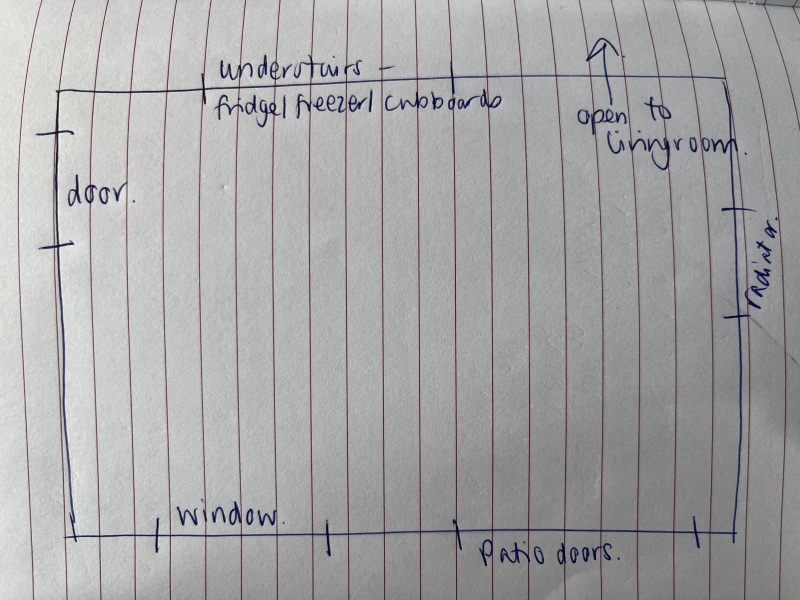 understairs -
fridge/freezer/ cupboards
open to
livingroom.
door.
radiator.
window.
Patio doors.